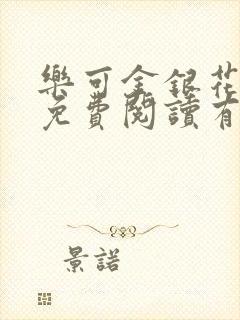 樂可金銀花
免費閱讀有
景諾